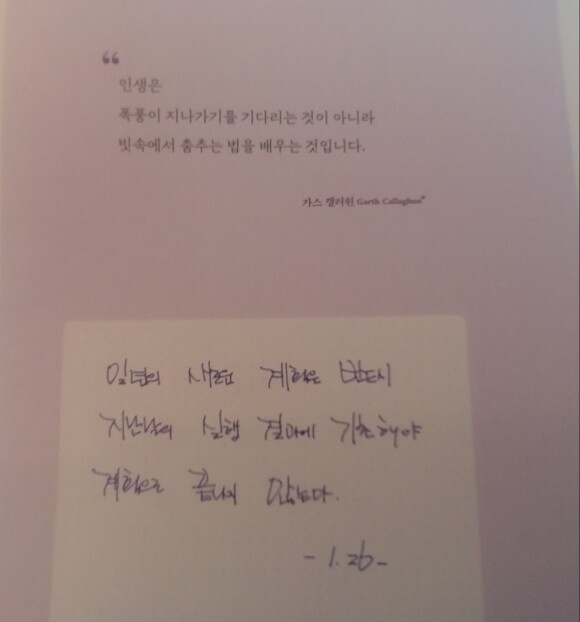 “
인생은
폭풍이 지나가기를 기다리는 것이 아니라
빗속에서 춤추는 법을 배우는 것입니다.
가스 캘러헌 Garth Callaghan
일년의 새로운 계획은 반드시
지난날의 실행 결과에 기초해야
계획으로 끝나지 않는다.
- 1. 26 -